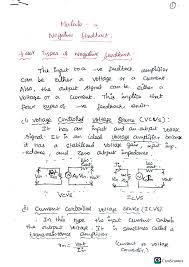 1
Module - 2
Negative feedback.
Four Types of Negative feedback
The input to a -ve feedback amplifier
can be either a voltage or a current
Also, the output signal can be either a
voltage or a current. This implies that
four types of -ve feedback
(i) Voltage Controlled Voltage Source (VCVS):
It has an input and an output voltage
signal. It is an ideal voltage amplifier because
it has a stabilized voltage gain, input imp-
edance and zero output impedance
VCVS
ICVS
(ii) Current Controlled Voltage Source (ICVS)
In this type the input current controls
the output voltage. It is sometimes called a
transresistance amplifier
(current to voltage
converter)
CamScanner